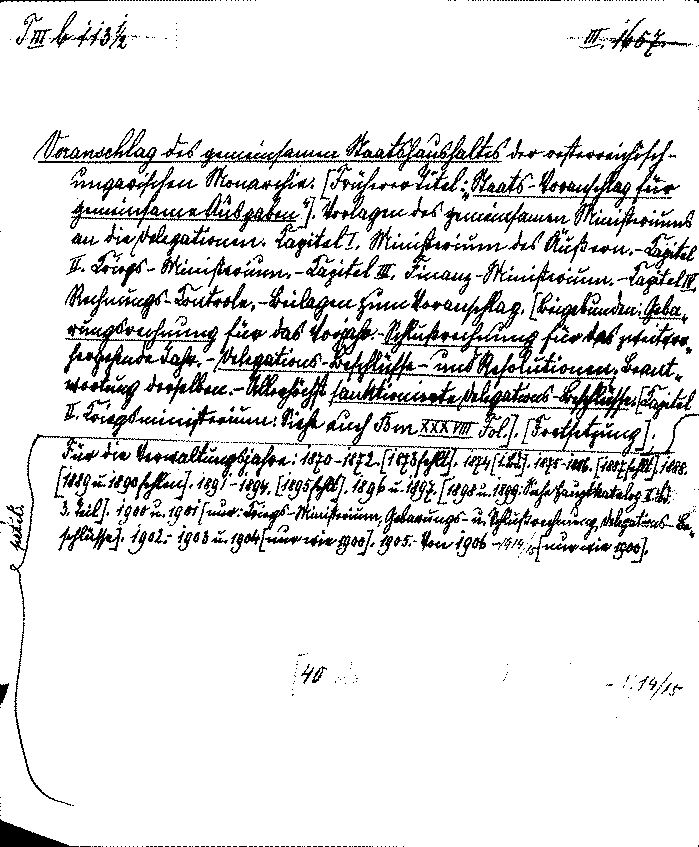 T III b 113½
III. 1657.
Voranschlag des gemeinsamen Staatshaushaltes der oesterreichisch-
ungarischen Monarchie. [Früherer Titel: „Staats-Voranschlag für
gemeinsame Ausgaben"]. Vorlagen des gemeinsamen Ministeriums
an die Delegationen. Capitel I. Ministerium des Äußern. - Capitel
II. Kriegs-Ministerium. - Capitel III. Finanz-Ministerium. - Capitel IV.
Rechnungs-Controle. - Beilagen zum Voranschlag. [Beigebunden: Geba-
rungsrechnung für das Vorjahr. - Schlußrechnung für das
hergehende Jahr. - Delegations-Beschlüsse - und Resolutionen, Beant-
wortung derselben. - Allerhöchst sanktionierte Delegations-Beschlüsse. [Capitel
II. Kriegsministerium: Siehe auch Bm XXXVIII Fol.]. [Fortsetzung].
Für die Verwaltungsjahre: 1870-1872. [1873 fehlt]. 1874 1875-1886. [1887 fehlt] 1888.
[1889 u. 1890 fehlen]. 1891-1894. [1895 fehlt]. 1896 u. 1897. [1898 u. 1899: Siehe Hauptkatalog
3. Teil]. 1900 u. 1901 [nur: Kriegs-Ministerium, Gebarungs- u. Schlußrechnung, Delegations-Be-
schlüsse]. 1902.- 1903 u. 1904 [nur wie 1900]. 1905.- Von 1906 -1914/15 [nur wie 1900].
[40
14/15